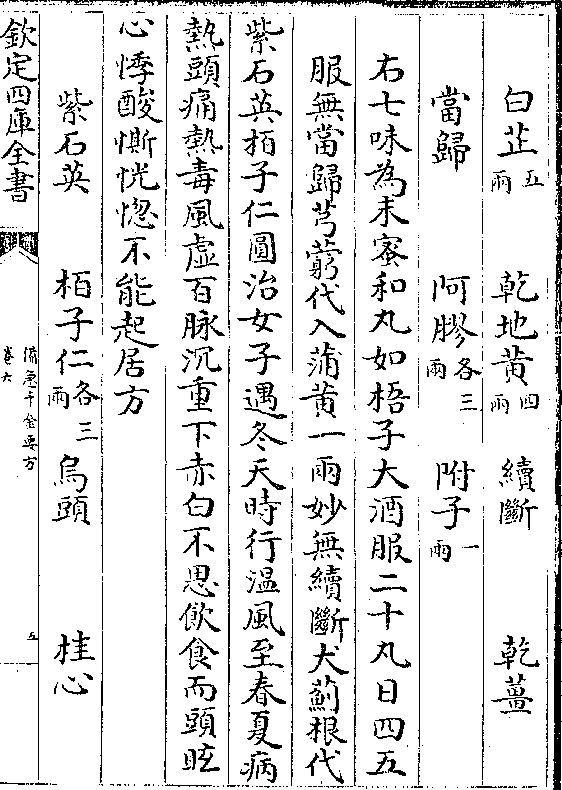 白芷五兩　乾地黃四兩　續斷　乾薑
當歸　阿膠各三兩　附子一兩
右七味為末蜜和丸如梧子大酒服二十丸日四五
服無當歸芎藭代入蒲黃一兩妙無續斷大薊根代
紫石英栢子仁圓治女子遇冬天時行温風至春夏病
熱頭痛熱毒風虛百脉沉重下赤白不思飲食而頭眩
心悸酸㾕恍惚不能起居方
紫石英　栢子仁各三兩　烏頭　桂心
欽定四庫全書　備急千金要方卷六　五